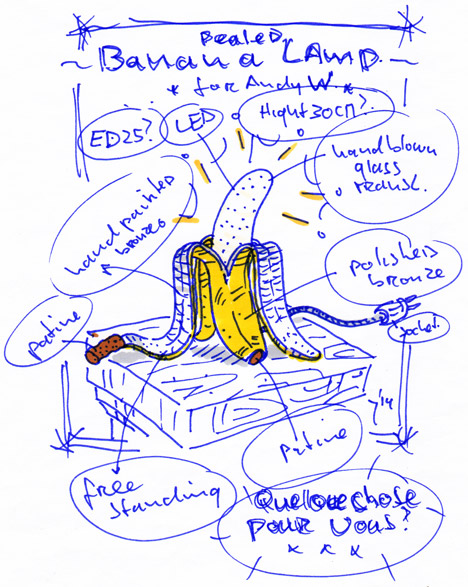 Pealed
~ Banana LAmp. ~
* for Andy W. *
ED 25?
LED
Hight 30cm?
handblown
glass
hand painted
bronze
polished
bronze
patine
Socket
patine
free
standing
Quelque chose
pour vous?
* * *